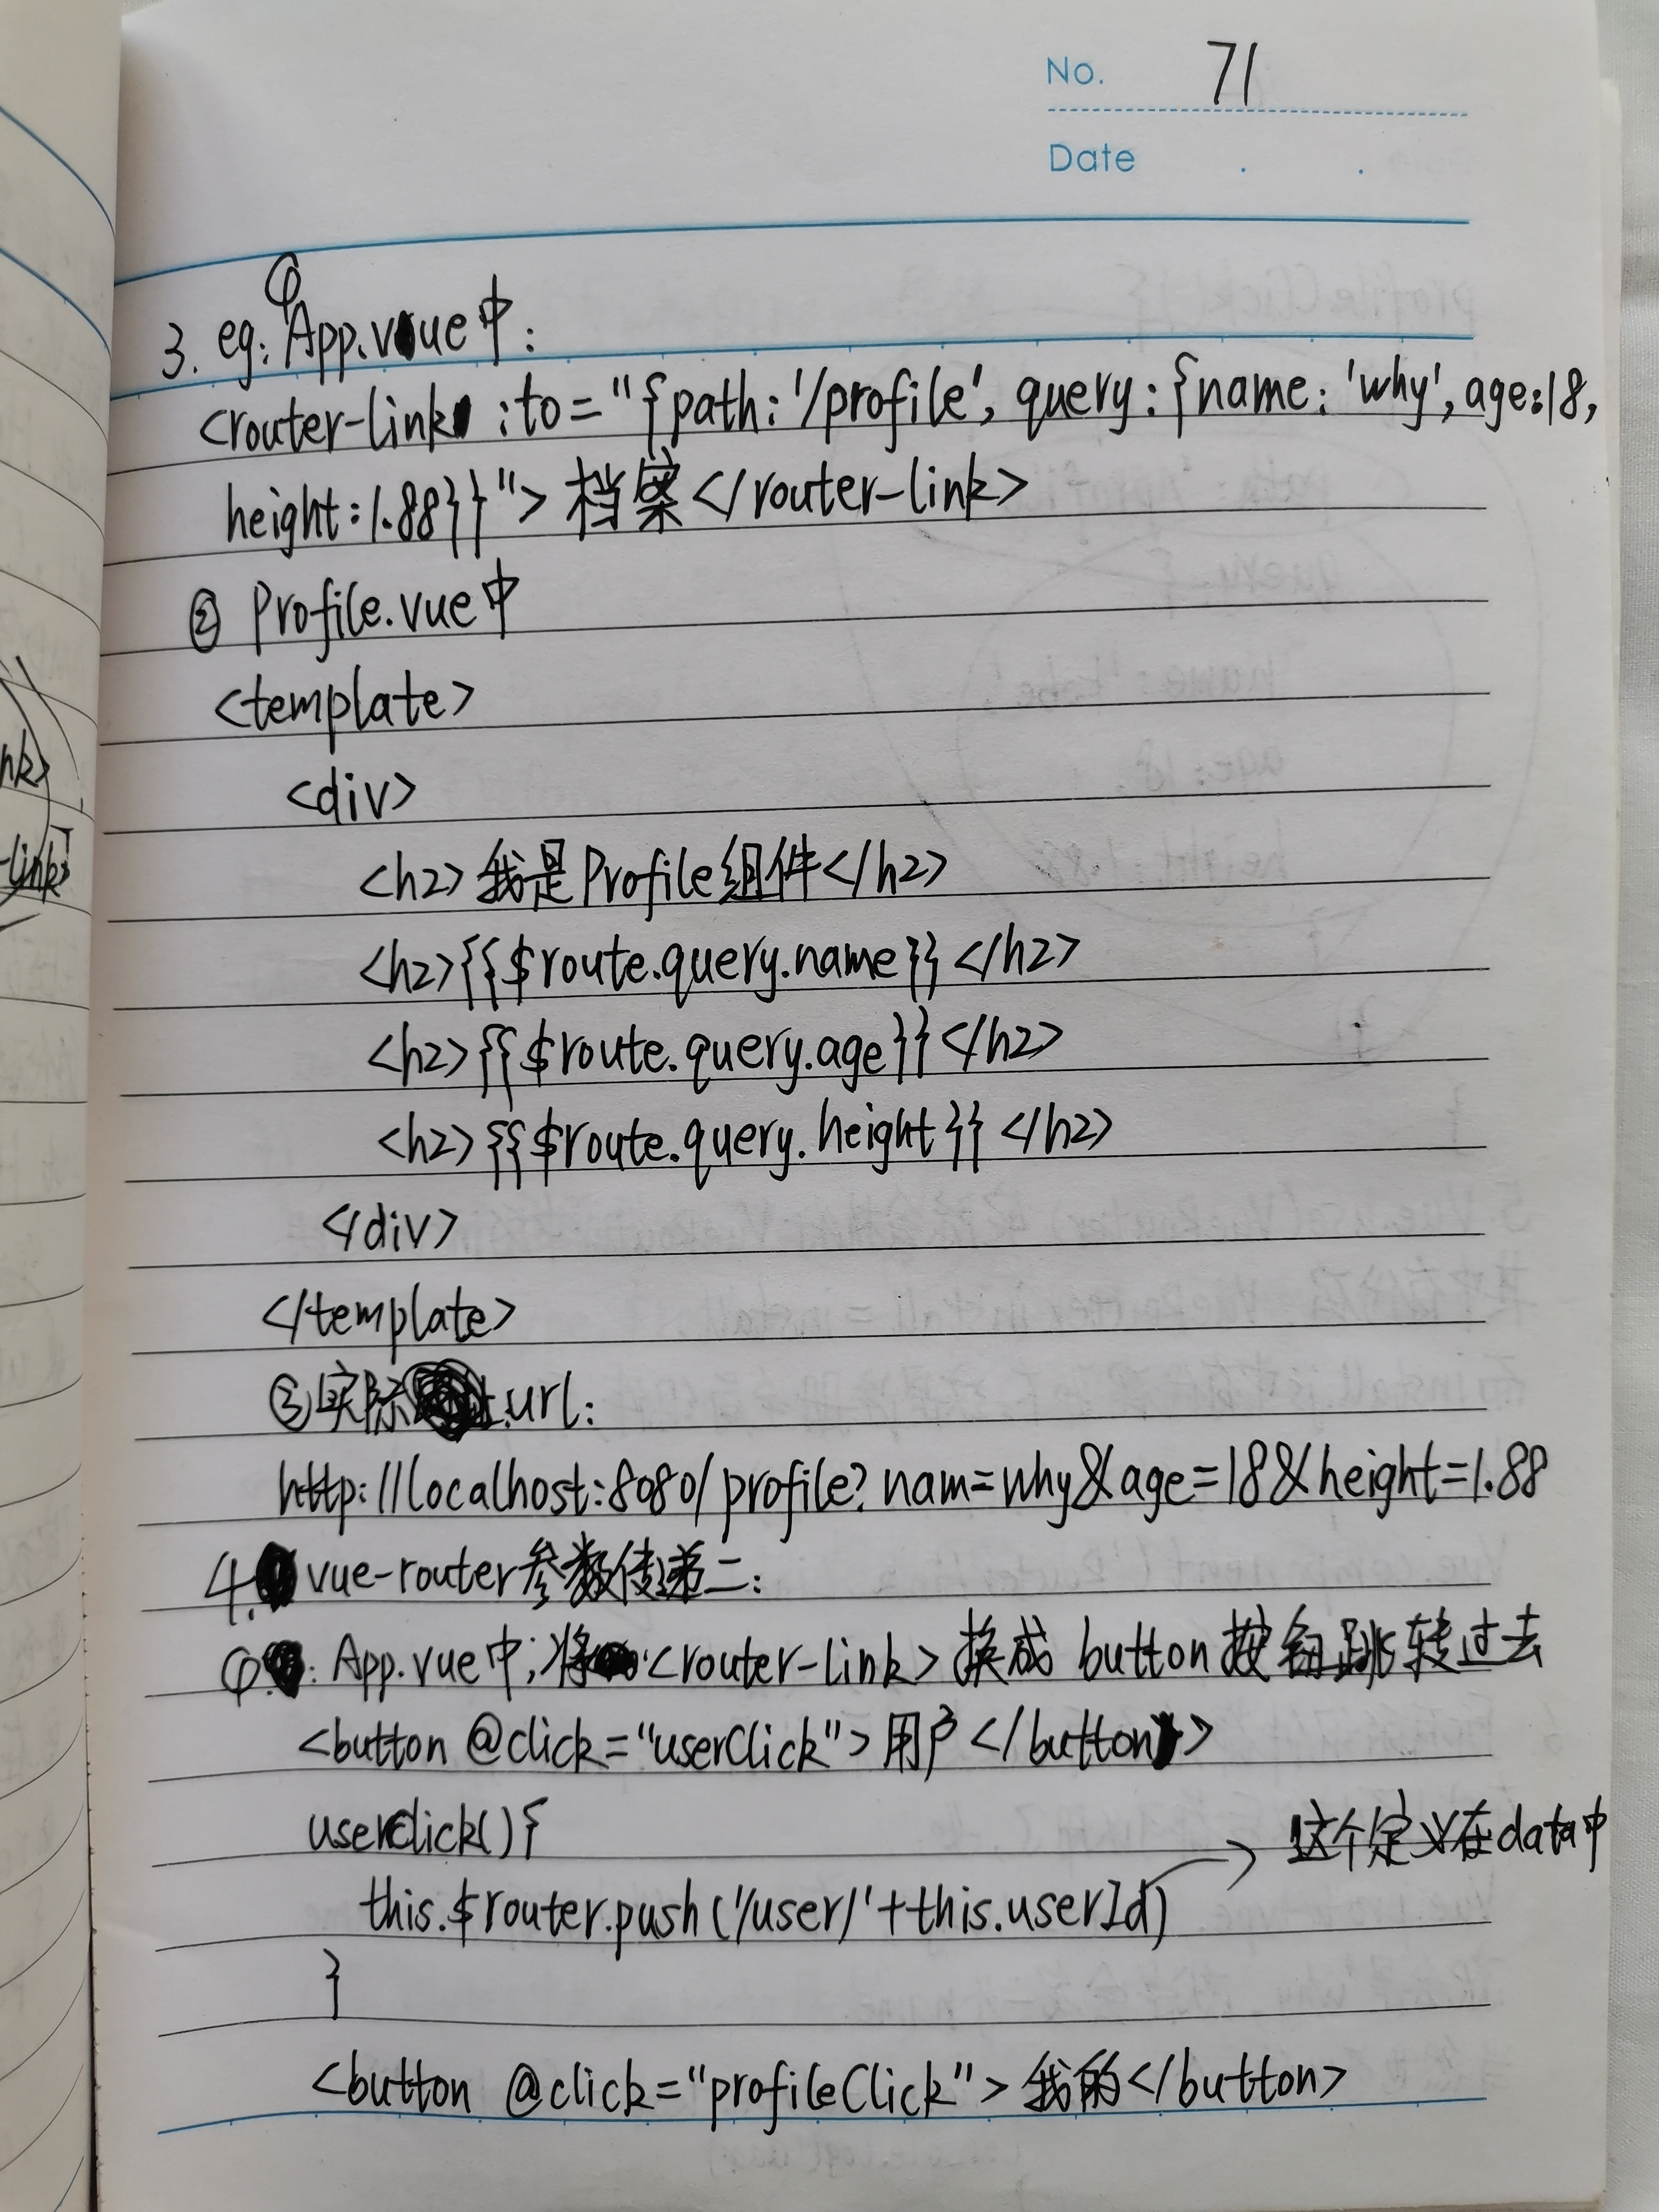 No. 71
Date . .
①
3. eg: App.vue中:
<router-link :to="{path:'/profile', query:{name:'why', age:18,
height:1.88}}">档案</router-link>
② Profile.vue中
<template>
<div>
<h2>我是Profile组件</h2>
<h2>{{$route.query.name}}</h2>
<h2>{{$route.query.age}}</h2>
<h2>{{$route.query.height}}</h2>
</div>
</template>
③实际url:
http://localhost:8080/profile?nam=why&age=18&height=1.88
4. vue-router参数传递二:
①: App.vue中;将<router-link>换成 button按钮跳转过去
<button @click="userClick">用户</button>
userClick(){
这个定义在data中
this.$router.push('/user/'+this.userId)
}
<button @click="profileClick">我的</button>
nk>
-link>